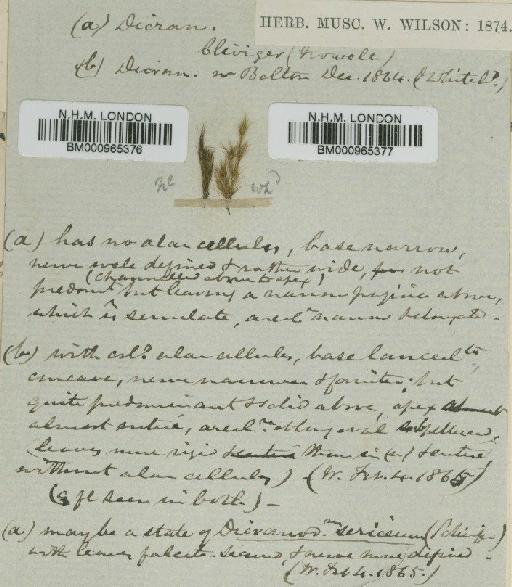 HERB. MUSC. W. WILSON: 1874.
(a) Dicran.
Cliviger (Nowell)
(b) Dicran. nr Bolton Dec. 1864.
N.H.M. LONDON
BM000965376
N.H.M. LONDON
BM000965377
(a) has no alar cellules, base narrow,
nerve well defined & rather wide, not
(channelled above to apex)
but leaving a narrow pagina above,
which is serrulate, areoln narrow &elongate -
(b) with cold alar cellules, base lanceolte,
concave, nerve narrower & fainter, but
quite predominant & solid above, apex
almost entire, areoln oblong oval
leaves more rigid than in (a) &
without alar cellules) (W. Feb. 4. 1865)
(♀ fl seen in both) -
(a) may be a state of Dicranodm sericeum (Schimp.)
with leaves falcato-secund & nerve more defined -
(W. Feb 4. 1865.)